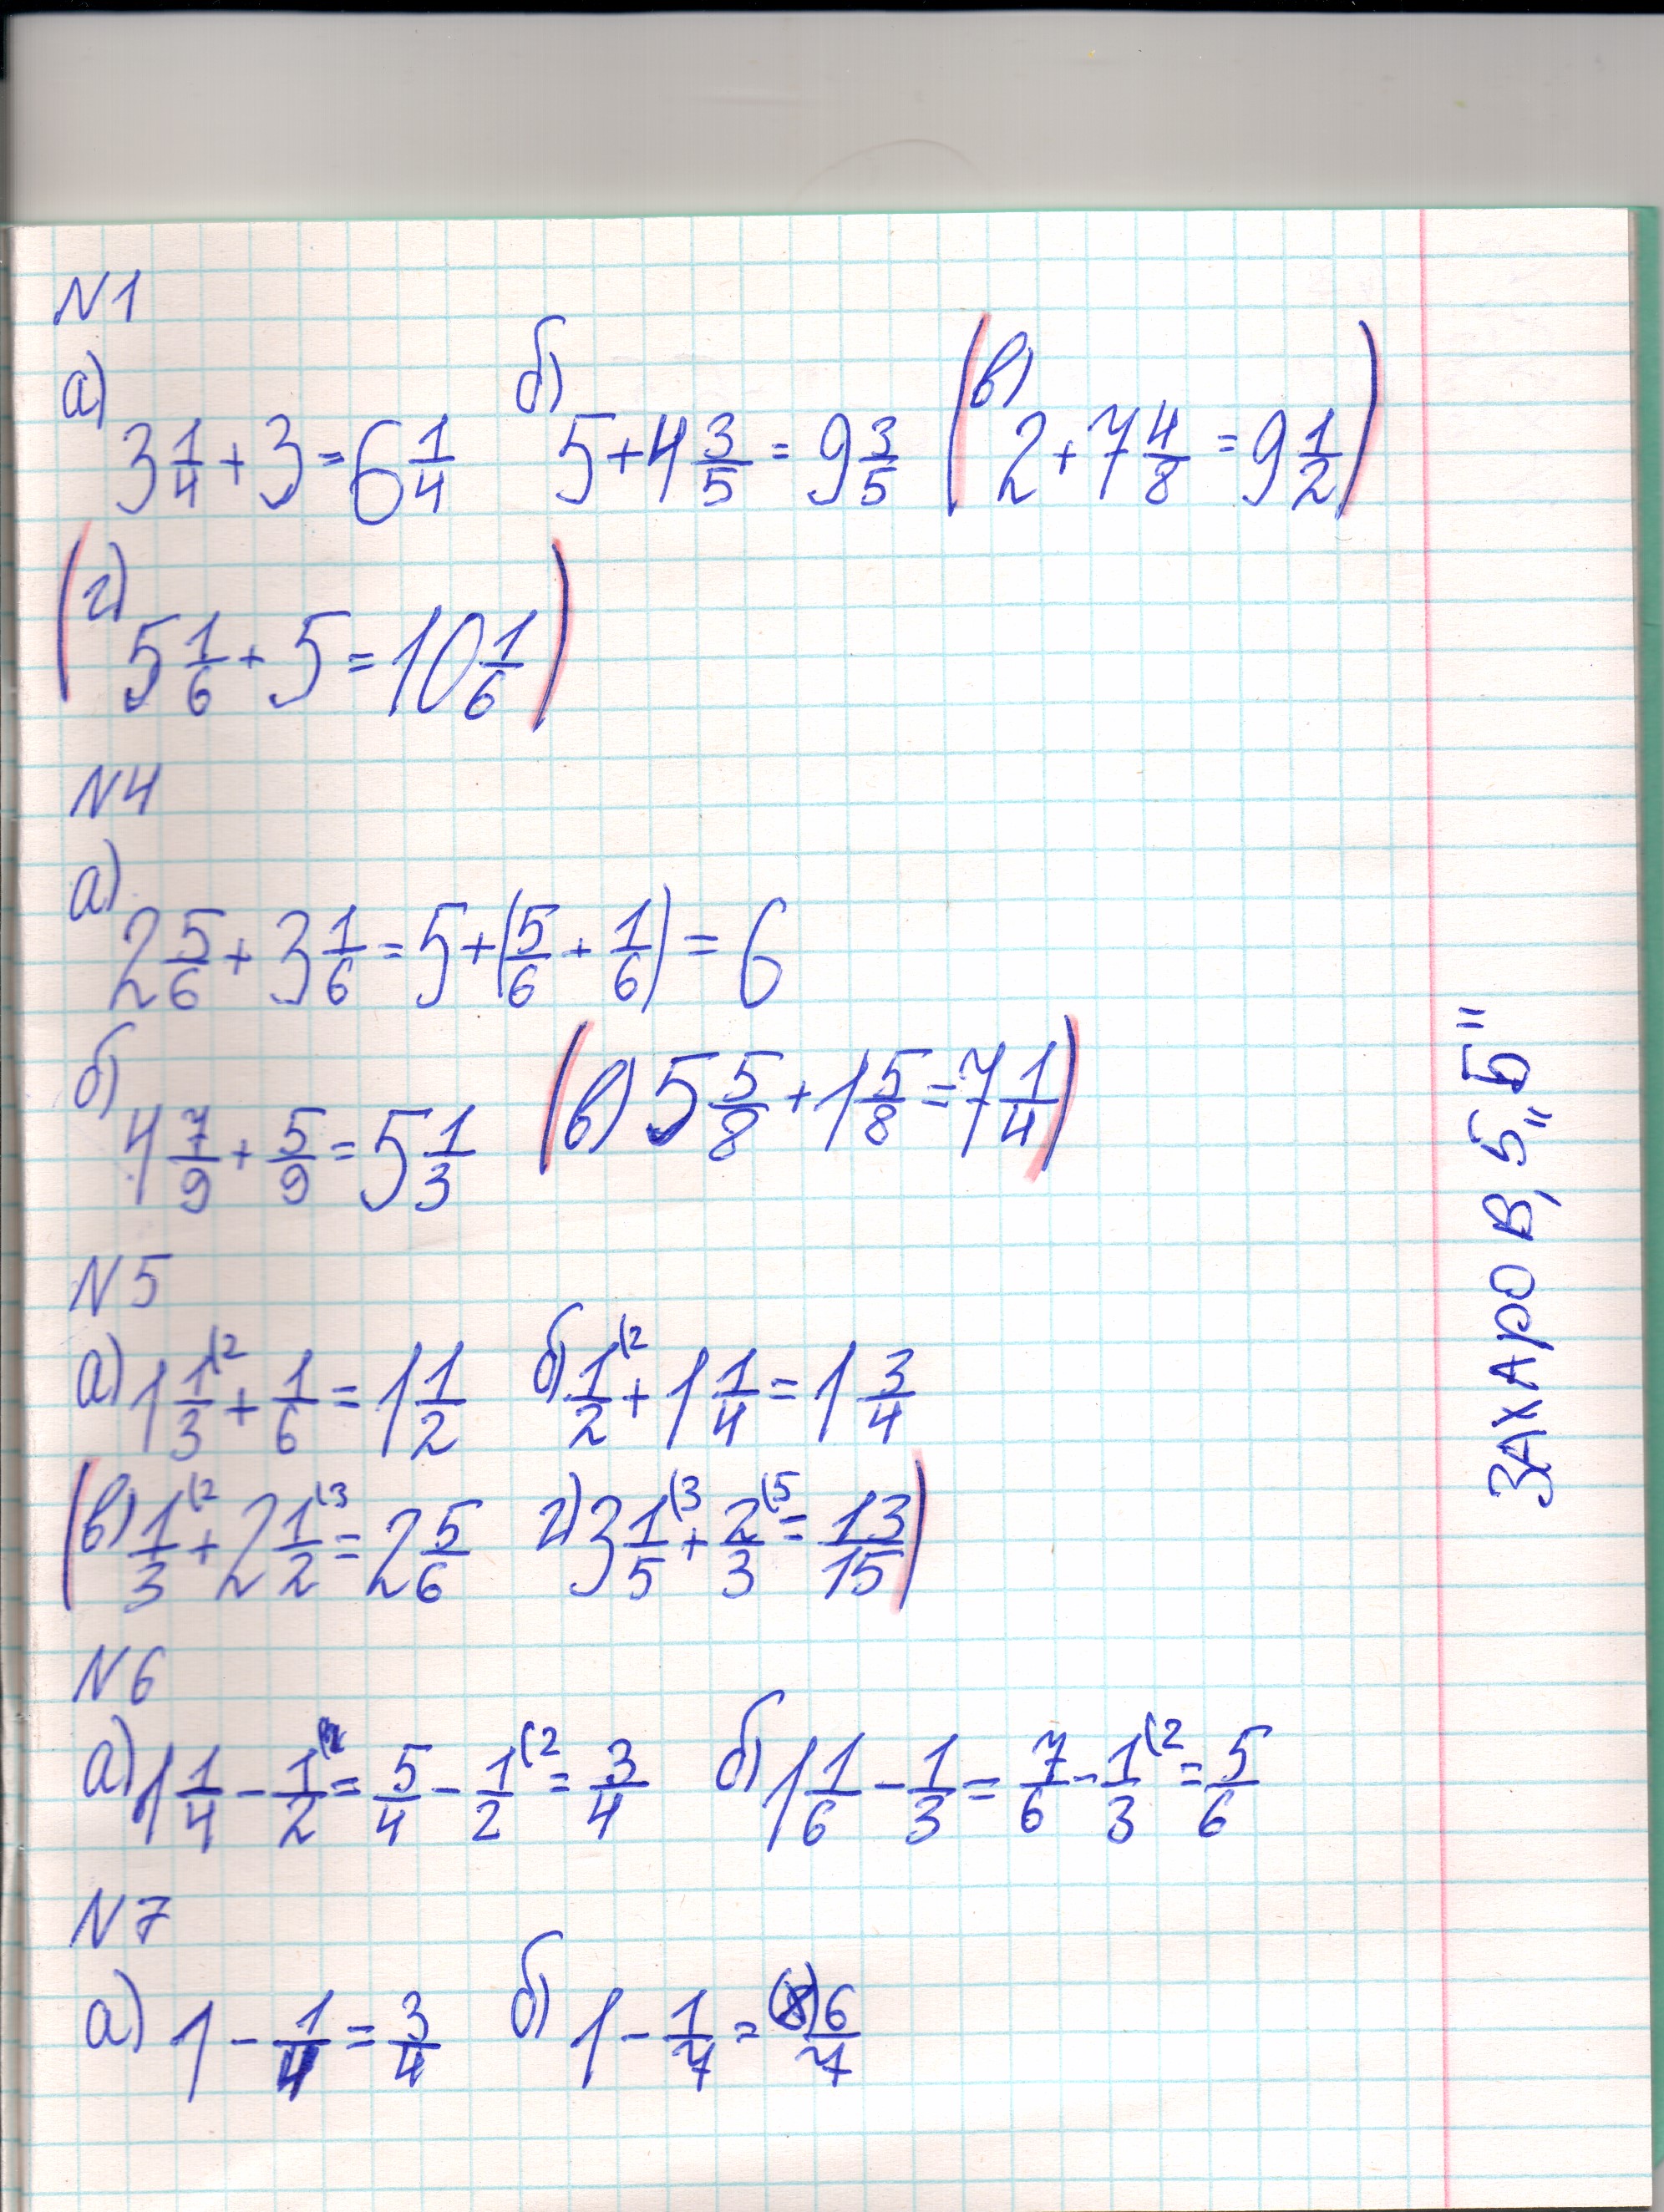 N1
а) 3 1/4 + 3 = 6 1/4 б) 5 + 4 3/5 = 9 3/5 (в) 2 + 7 4/8 = 9 1/2)
(г) 5 1/6 + 5 = 10 1/6)
N4
а) 2 5/6 + 3 1/6 = 5 + (5/6 + 1/6) = 6
б) 4 7/9 + 5/9 = 5 1/3 (в) 5 5/8 + 1 5/8 = 7 1/4)
N5
а) 1 1/3 (2 + 1/6 = 1 1/2 б) 1/2 (2 + 1 1/4 = 1 3/4
(в) 1/3 (2 + 2 1/2 (3 = 2 5/6 г) 3 1/5 (3 + 2/3 (5 = 13/15)
N6
а) 1 1/4 - 1/2 = 5/4 - 1/2 (2 = 3/4 б) 1 1/6 - 1/3 = 7/6 - 1/3 (2 = 5/6
N7
а) 1 - 1/4 = 3/4 б) 1 - 1/7 = (8) 6/7
ЗАХАРОВ, 5 „Б"